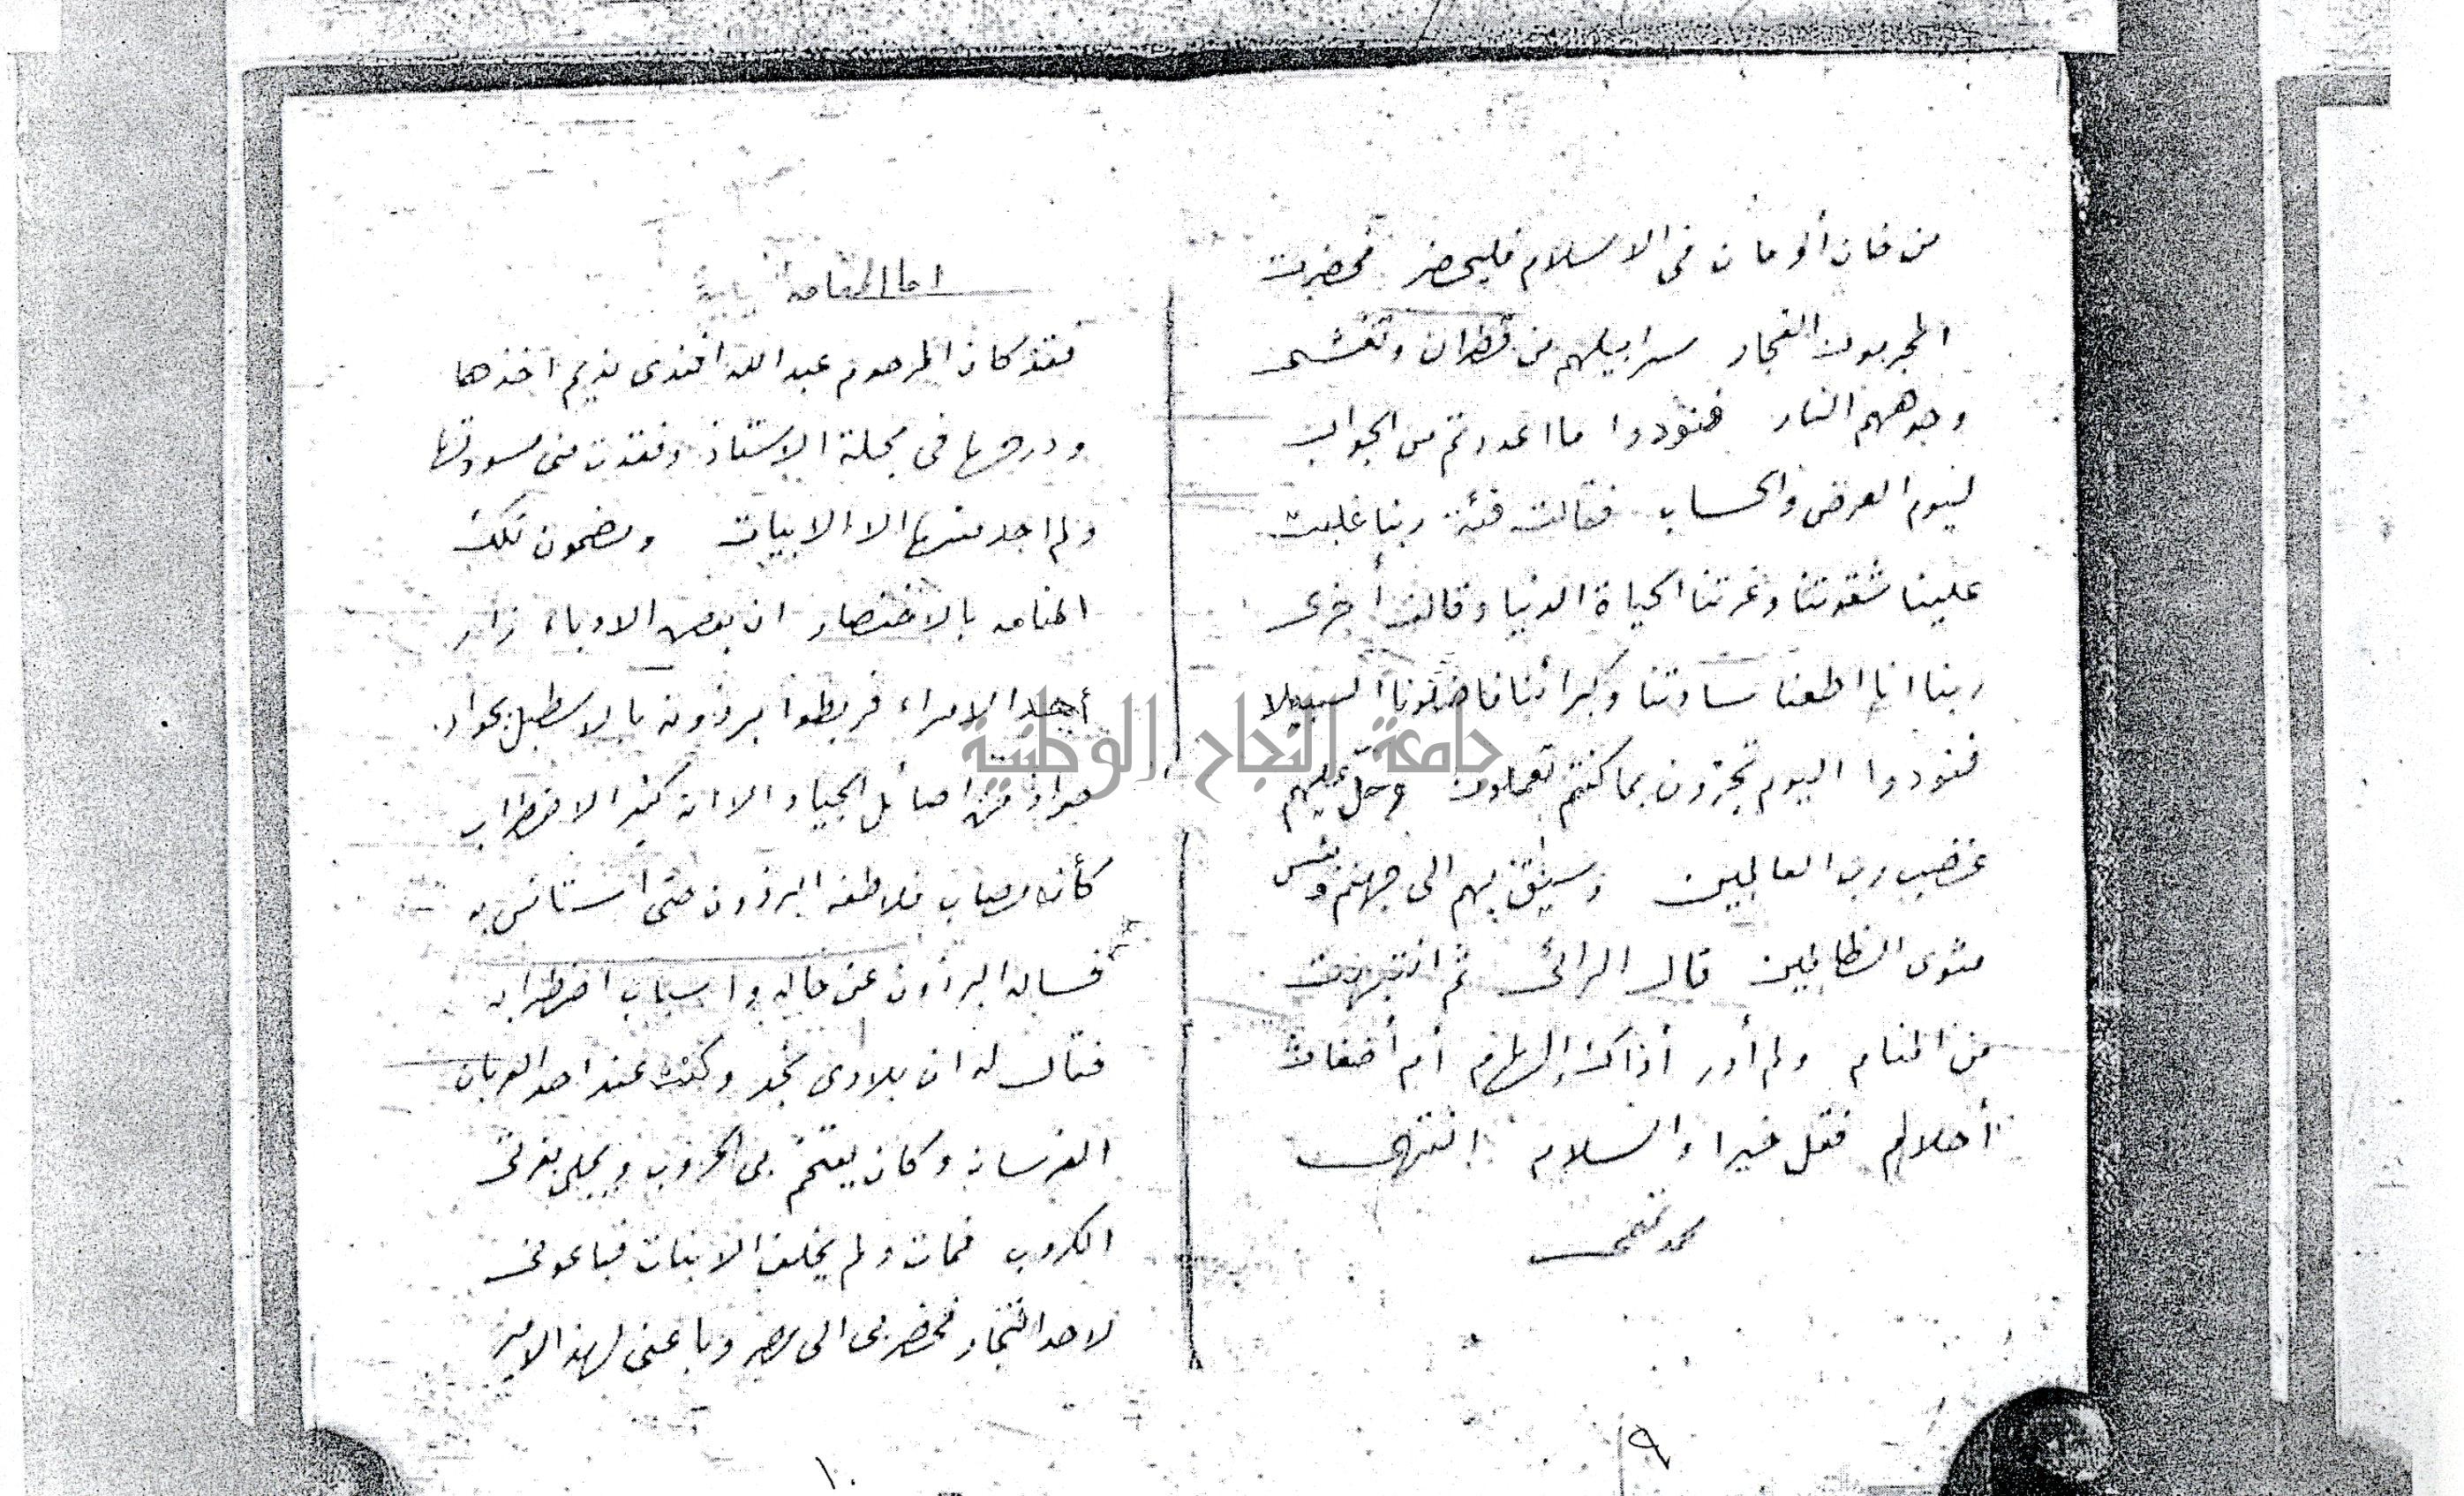 من خان أو مان في الاسلام فليحضر فحضرت
المجرمون الفجار سرابيلهم من قطران وتغشى
وجوههم النار فنودوا ما اعددتم من الجواب
ليوم العرض والحساب فقالت فئة ربنا غلبت
علينا شقوتنا وغرتنا الحياة الدنيا وقالت أخرى
ربنا انا اطعنا سادتنا وكبرائنا فاضلونا السبيلا
فنودوا اليوم تجزون بما كنتم تعملون وحل عليهم
غضب رب العالمين وسيق بهم الى جهنم وبئس
مثوى الظالمين قال الرائى ثم انتبهت
من المنام ولم أدر أذاك إلهام أم أضغاث
أحلام فقل خيرا والسلام انتهى
محمد فهمى
٩
اما المقامه
فقد كان المرحوم عبد الله افندى نديم اخذها
ودرجها فى مجلة الاستاذ وفقدت منى مسودتها
ولم اجد منها الا الابيات ومضمون تلك
المقامه بالاختصار ان بعض الادباء زار
أحد الامراء فربطوا برذونه بالاسطبل بجوار
جواد من اصائل الجياد الا انه كثير الاضطراب
كأنه مصاب فلاطفه البرذون حتى استانس به
فساله البرذون عن حاله واسباب اضطرابه
فقال له ان بلادى نجد وكنت عند احد العربان
الفرسان وكان يقتحم بى الحروب ويجلى بغرتى
الكروب فمات ولم يخلف الا بنات فباعونى
لاحد التجار فحضر بى الى مصر وباعنى لهذا الامير
١٠
جامعة النجاح الوطنية